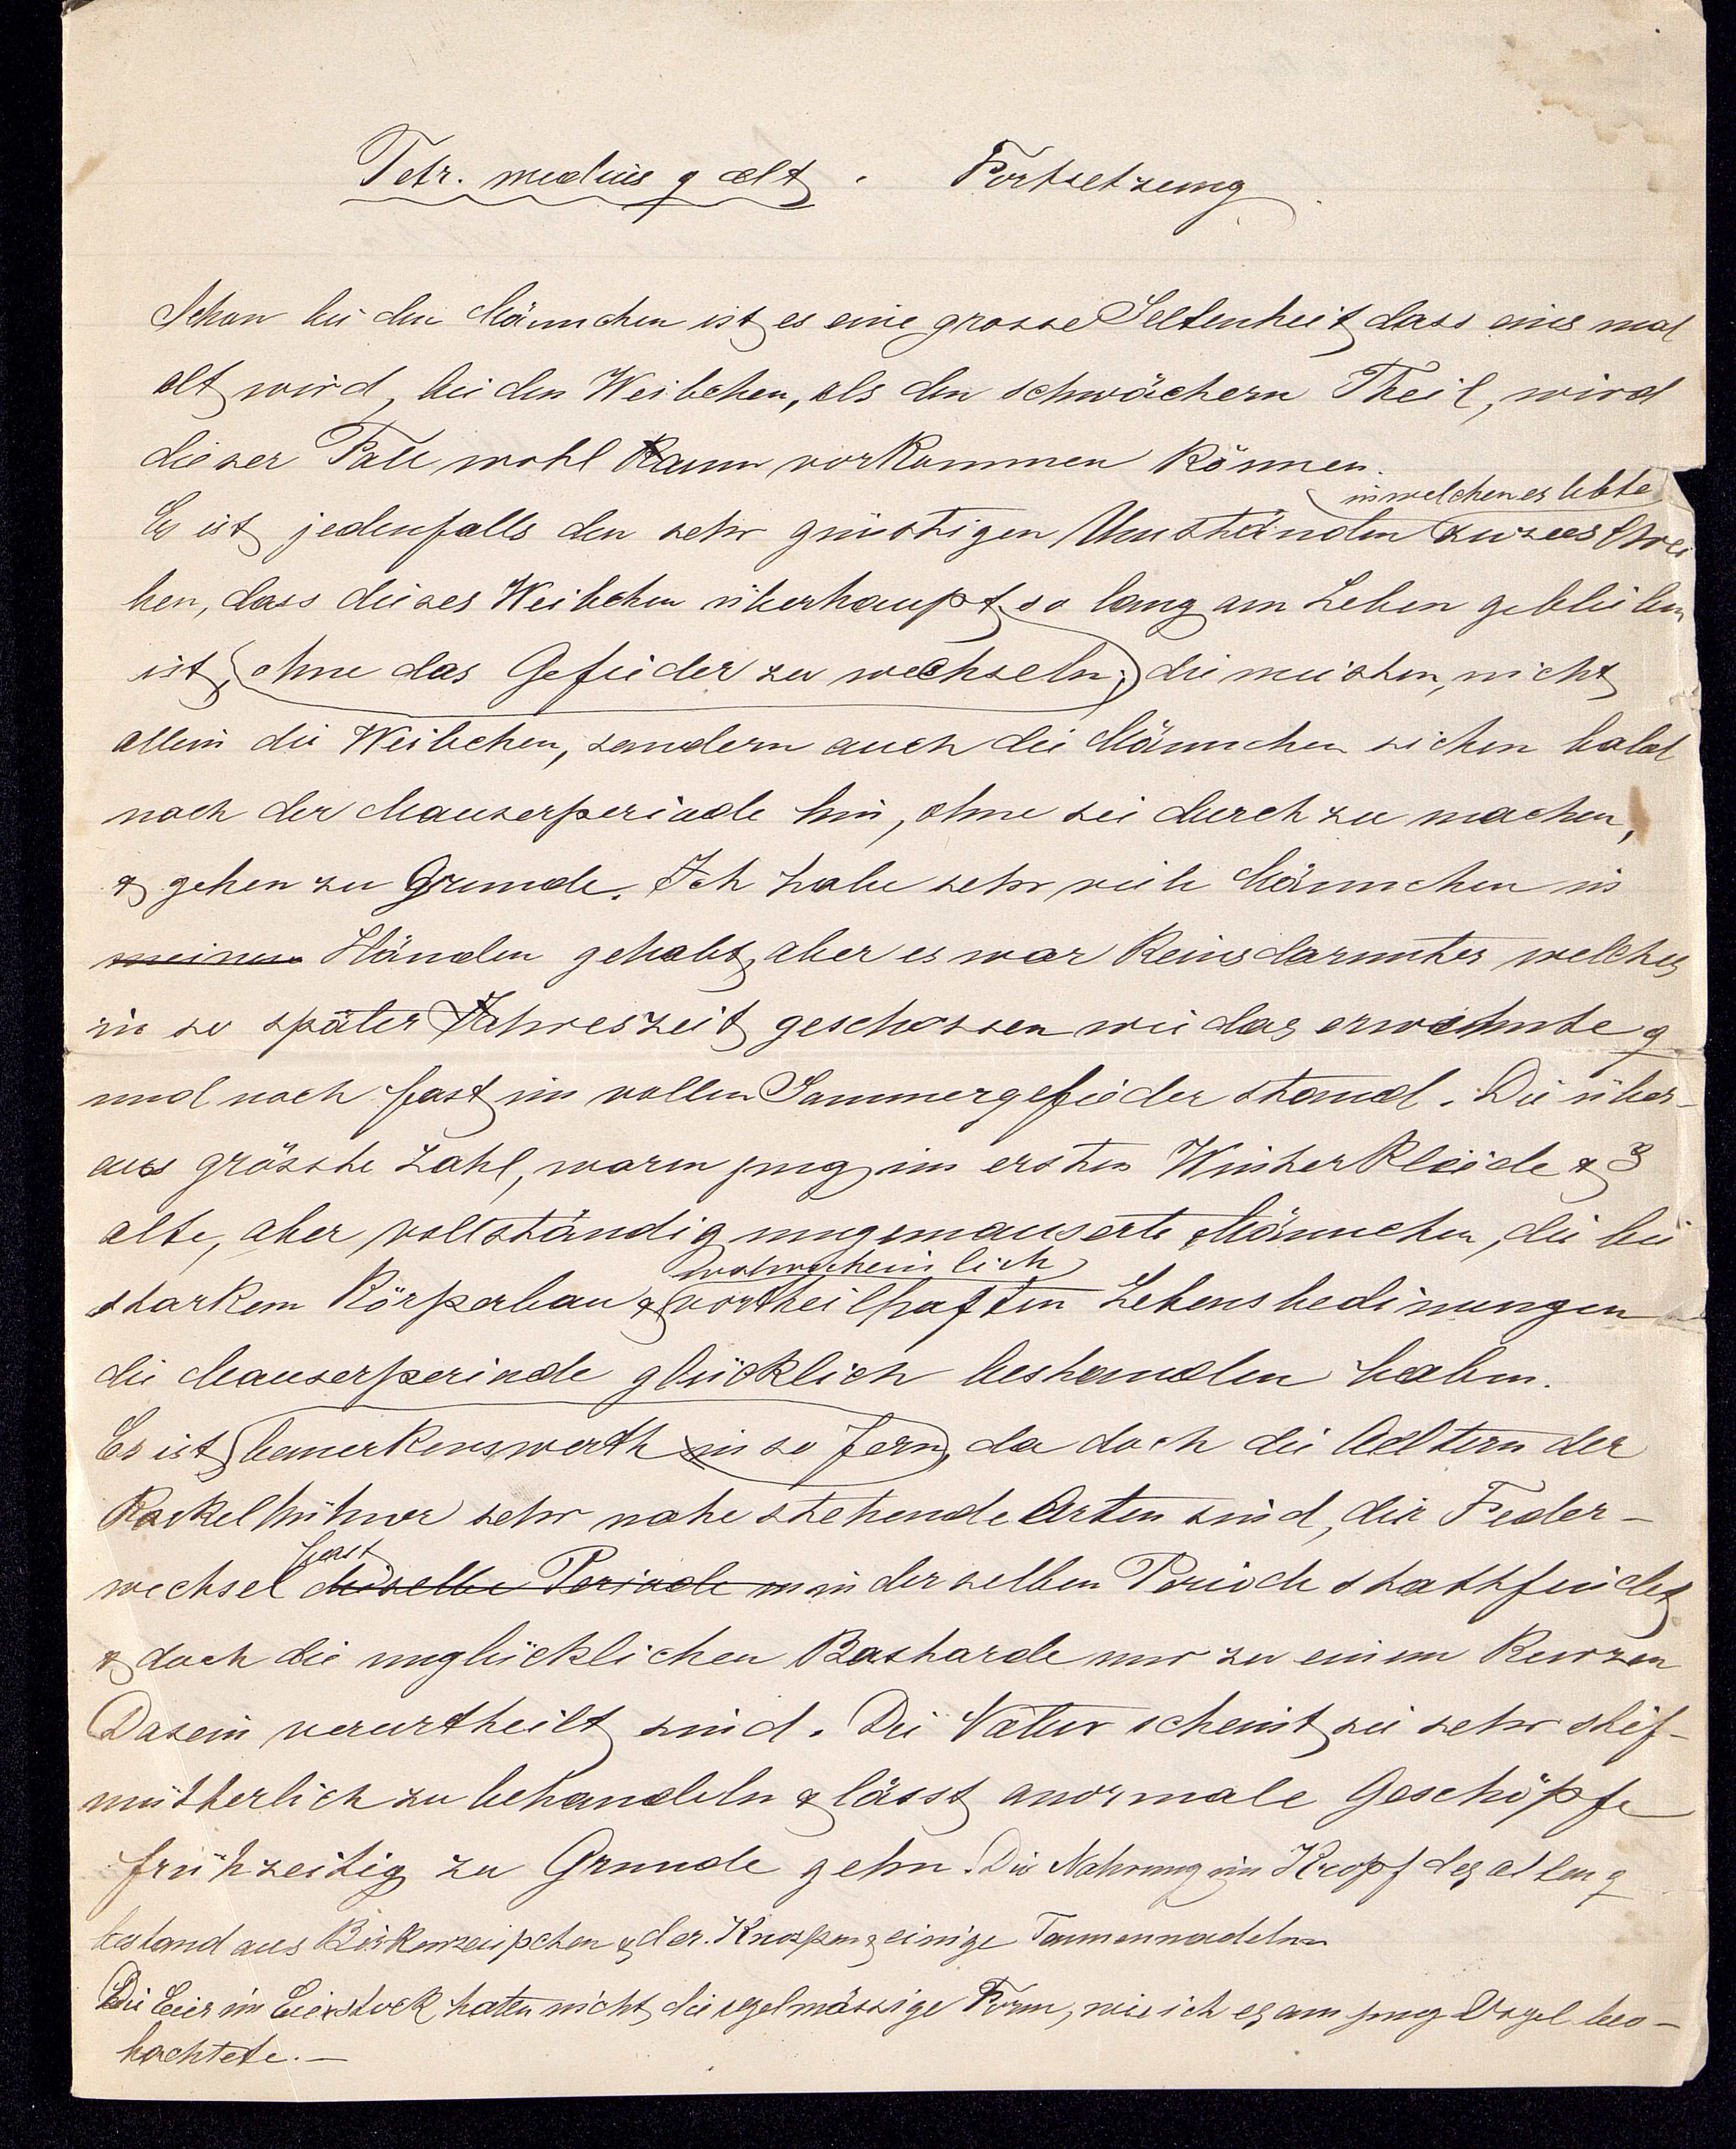 Tetr. medius ♀ alt. Fortsetzung
Schon bei den Männchen ist es eine grosse Seltenheit dass eins mal
alt wird, bei den Weibchen, als den schwächern Theil, wird
dieser Fall wohl kaum vorkommen können.
in welchen es lebte
Es ist jedenfalls den sehr günstigen Umständen zuzuschrei
ben, dass dieses Weibchen überhaupt so lang am Leben geblieben
ist, ohne das Gefieder zu wechseln; die meisten, nicht
allein die Weibchen, sondern auch die Männchen siechen bald
nach der Mauserperiode hin, ohne sie durch zu machen,
& gehen zu Grunde. Ich habe sehr viele Männchen in
meinen Händen gehabt, aber es war keins darunter welches
in so später Jahreszeit geschossen wie das erwehnte ♀
und noch fast im vollen Sommergefieder stand. Die über-
aus grösste Zahl, waren jung im ersten Winterkleide & 3
alte, aber vollständig umgemauserte Männchen, die bei
wahrscheinlich
starkem Körperbau & vortheilhaften Lebensbedinungen
die Mauserperiode glücklich bestanden haben.
Es ist bemerkenswerth in so fern, da doch die Aeltern der
Rackelhühner sehr nahe stehende Arten sind, die Feder-
fast
wechsel dieselbe Periode in der selben Periode stattfindet
& doch die unglücklichen Bastarde nur zu einem kurzen
Dasein verurtheilt sind. Die Natur scheint sie sehr stif-
mütterlich zu behandeln & lässt anormale Geschöpfe
frühzeitig zu Grunde gehn. Die Nahrung im Kropf des alten ♀
bestand aus Birkenzeipchen & der. Knospen & einige Tannennadeln
Die Eier im Eierstock hatten nicht die regelmässige Form, wie ich es am jung Vogel beo-
bachtete. —